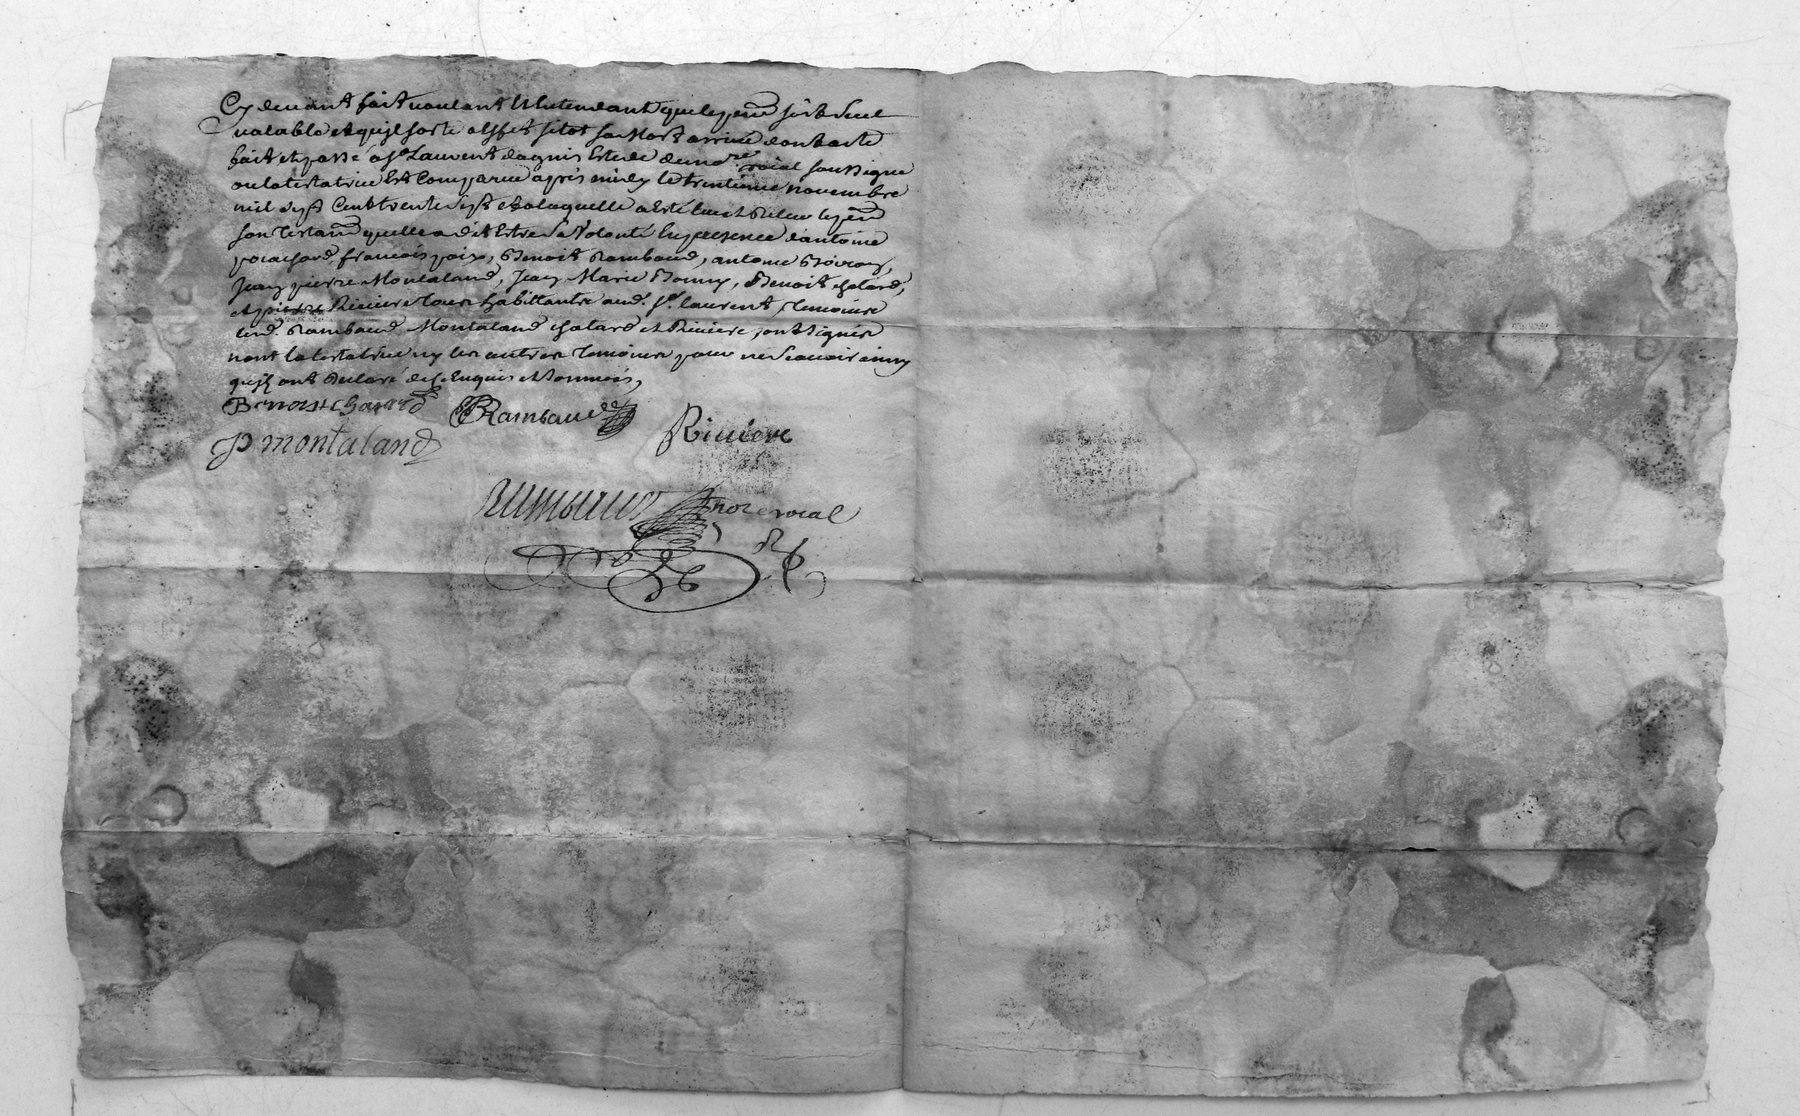 Cy devant fait voulant Et Entendant que le pnt soit Seul
valable et qu'jl sorte a Effet sitot sa Mort arrivé dont acte
fait et passé a St Laurent dagnis Etude de nore
roial soussigné
ou la testatrice Est Comparue après midy le trentieme novembre
mil sept Cent trente sept et a laquelle a Esté lu et Relu le pnt
son Testamt quelle a dit Estre sa Volonté En presence d'antoine
francois poix, Benoit Rambaud, antoine
Jean pierre Montaland, Jean Marie Bonny, Benoit chatard,
et pierre Riviere tous habittants aud. St laurent, Temoins
lesd. Rambaud Montaland chatard et Riviere, ont signés
non la testatrice ny les autres Temoins pour ne scavoir ainsy
qu'jls ont declaré de ce Enquis et sommés,
Benoist chatard
Rambaud
Riviere
JP montaland
Rambaud nore roial